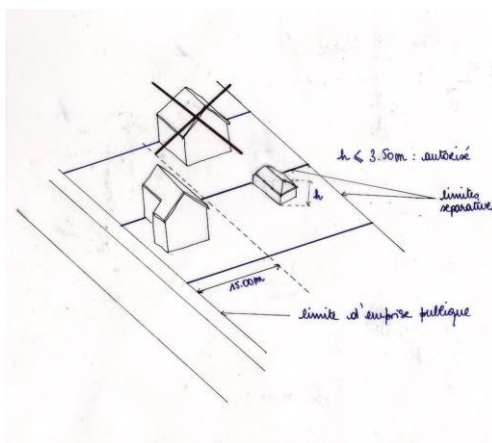 h ⩽ 3.50m : autorisé
h
limites
séparatives
15.00m
limite d'emprise publique